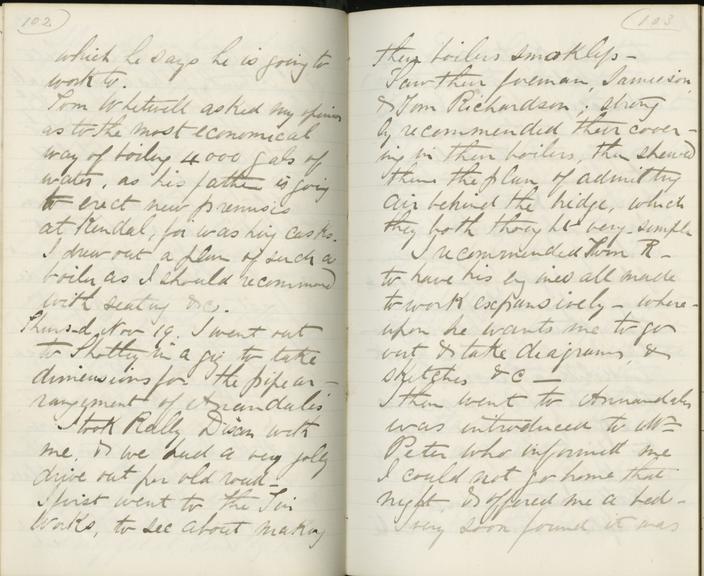 102
which he says he is going to
work to.
Tom Whitwell asked my opinion
as to the most economical
way of boiling 4000 gals of
water, as his father is going
to erect new premises
at Kendal, for washing casks.
I drew out a plan of such a
boiler as I should recommend
with seating &c.
Thurs-d, Nov 19, I went out
to Shotley in a gig to take
dimensions for the pipe ar-
rangement of Annandale's
I took Dixon with
me, & we had a very jolly
drive out per old road-
I first went to the Tin
Works, to see about making
103
their boilers smokless-
Saw their foreman, Jamieson
& Tom Richardson; strong
ly recommended their cover-
ing in their boilers, then shewed
them the plan of admitting
air behind the bridge, which
they both thought very simple
I recommended Tom R-
to have his engines all made
to work expansively- where-
upon he wants me to go
out & take diagrams, &
sketches &c-
I then went to Annandales
was introduced to Mr
Peter who informed me
I could not go home that
night & offered me a bed-
I very soon found it was